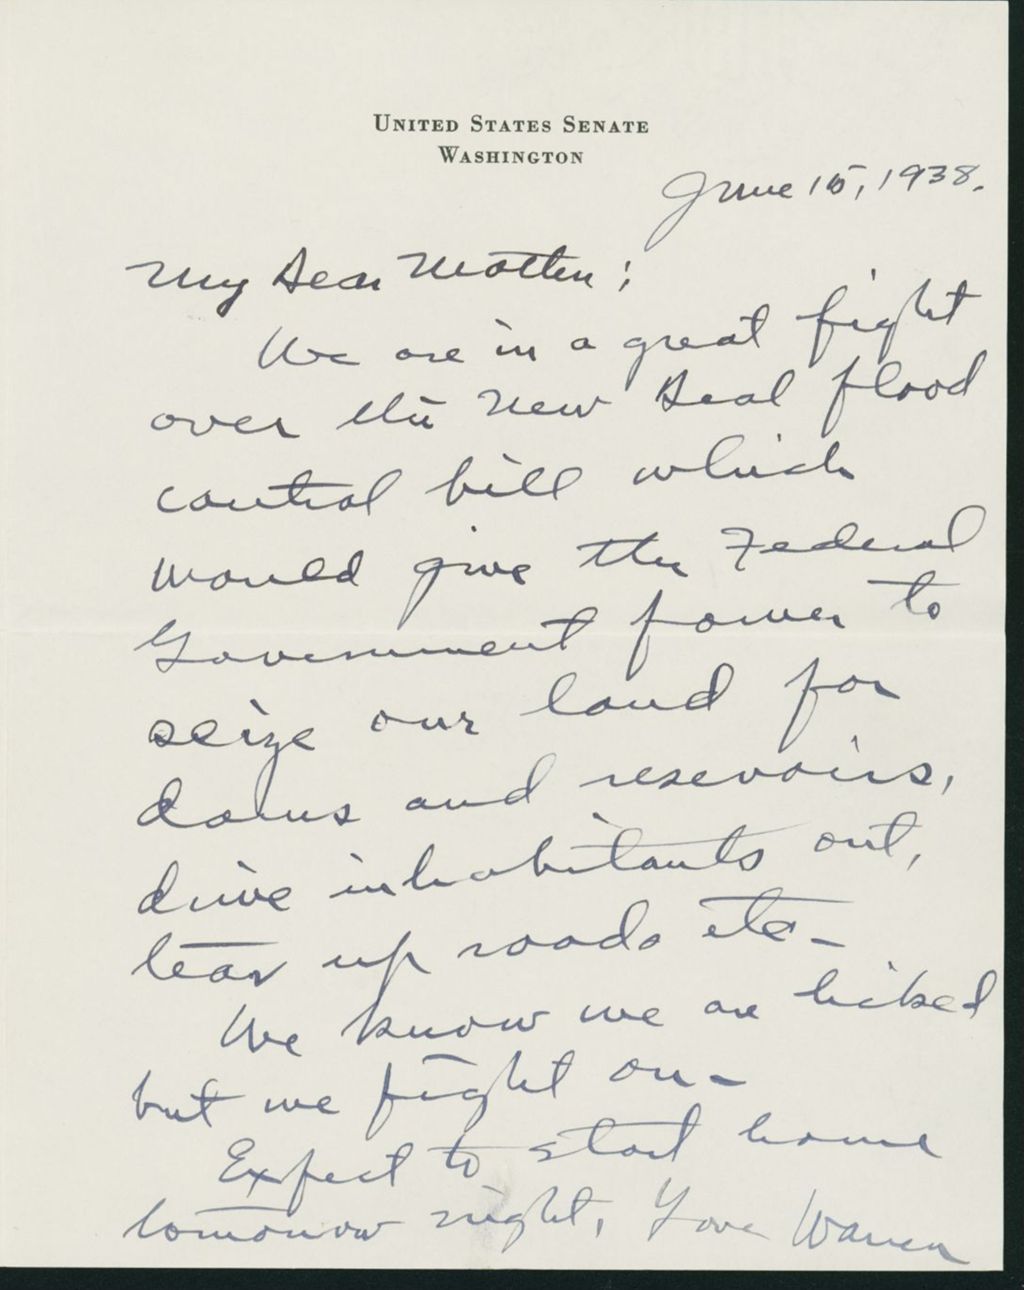 UNITED STATES SENATE
WASHINGTON
June 15, 1938.
My Dear Mother;
We are in a great fight
over the New Deal flood
control bill which
would give the Federal
Government power to
seize our land for
dams and resevoirs,
drive inhabitants out,
tear up roads etc-
We know we are licked
but we fight on-
Expect to start home
tomorrow night, Love Warren